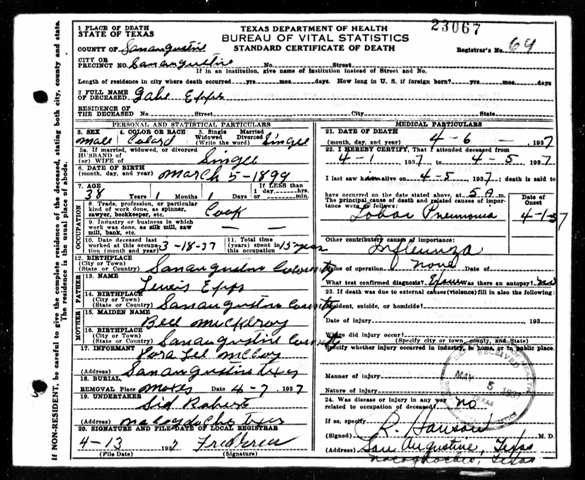 1 PLACE OF DEATH
STATE OF TEXAS
TEXAS DEPARTMENT OF HEALTH
BUREAU OF VITAL STATISTICS
STANDARD CERTIFICATE OF DEATH
23067
COUNTY OF San Augustine
Registrar's No. 69
CITY OR
PRECINCT NO. San Augustine No. Street
If in an institution, give name of institution instead of Street and No.
Length of residence in city where death occurred yrs. mos. days. How long in U. S. if foreign born? yrs. mos. days
2 FULL NAME
OF DECEASED Gabe Epps
RESIDENCE OF
THE DECEASED No. Street City State
If NON-RESIDENT, be careful to give the complete residence of the deceased, stating both city, county and state. The residence is the usual place of abode.
PERSONAL AND STATISTICAL PARTICULARS
3. SEX Male
4. COLOR OR RACE Colord
5. Single Married
Widowed Divorced
(Write the word) Single
5a. If married, widowed, or divorced
HUSBAND OF
(or) WIFE OF Single
6. DATE OF BIRTH
(month, day, and year) March 5-1899
7. AGE
38 Years 1 Months 1 Days
If LESS than
1 day
OCCUPATION
8. Trade, profession, or particular
kind of work done, as spinner,
sawyer, bookkeeper, etc. Cook
9. Industry or business in which
work was done, as silk mill, saw
mill, bank, etc.
10. Date deceased last
worked at this occupation
(month and year) 3-18-37
11. Total time
(years) spent in this
occupation 15 years
12. BIRTHPLACE
(City or Town)
(State or Country) San Augustine County
FATHER
13. NAME Lewis Epps
14. BIRTHPLACE
(City or Town)
(State or Country) San Augustine County
MOTHER
15. MAIDEN NAME
16. BIRTHPLACE
(City or Town)
(State or Country) San Augustine
17. INFORMANT
(Address) San Augustine Texas
18. BURIAL,
REMOVAL Place Date 4-7 1937
19. UNDERTAKER Sid Roberts
(Address) Nacogdoches
20. SIGNATURE AND FILE DATE OF LOCAL REGISTRAR
4-13 193
(File Date) (Signature)
MEDICAL PARTICULARS
21. DATE OF DEATH
(month, day, and year) 4-6 1937
22. I HEREBY CERTIFY, That I attended deceased from
4-1 1937, to 4-5, 1937
I last saw him alive on 4-5 1937; death is said to
have occurred on the date stated above, at 5 A. m.
The principal cause of death and related causes of importance were as follows:
Date of
Onset
Lobar Pneumonia 4-1-37
Other contributory causes of importance:
Influenza
Name of operation None Date of
What test confirmed diagnosis? Exam Was there an autopsy? No
23. If death was due to external causes (violence) fill in also the following:
Accident, suicide, or homicide?
Date of injury 193
Where did injury occur?
(Specify city or town, county, and state)
Specify whether injury occurred in industry, in home, or in public place.
Manner of injury
Nature of injury
24. Was disease or injury in any way
related to occupation of deceased? No
If so, specify
(Signed) M. D.
(Address) San Augustine, Texas
Nacogdoches, Texas
RECEIVED
MAY 5 1937